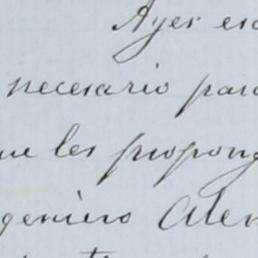 Ayer es
necesario para
ue les propong
geniero Alem